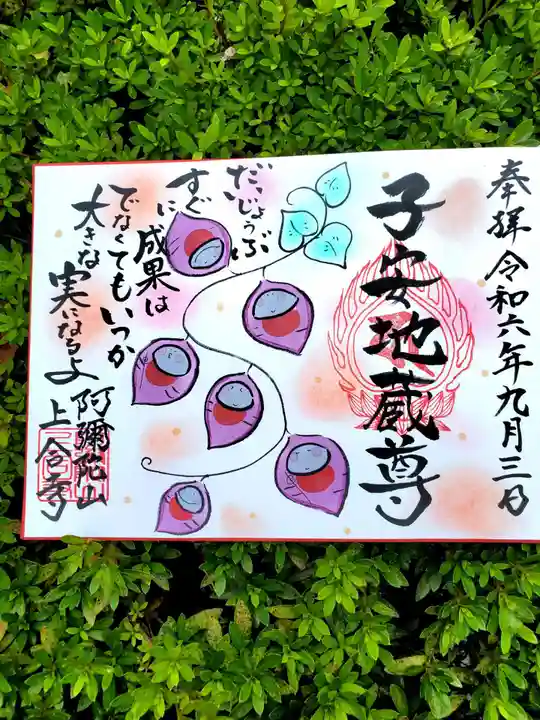 奉拝令和六年九月三日
子安地蔵尊
だいじょうぶ
すぐに成果は
でなくてもいつか
大きな実になるよ
阿彌陀山
上合寺